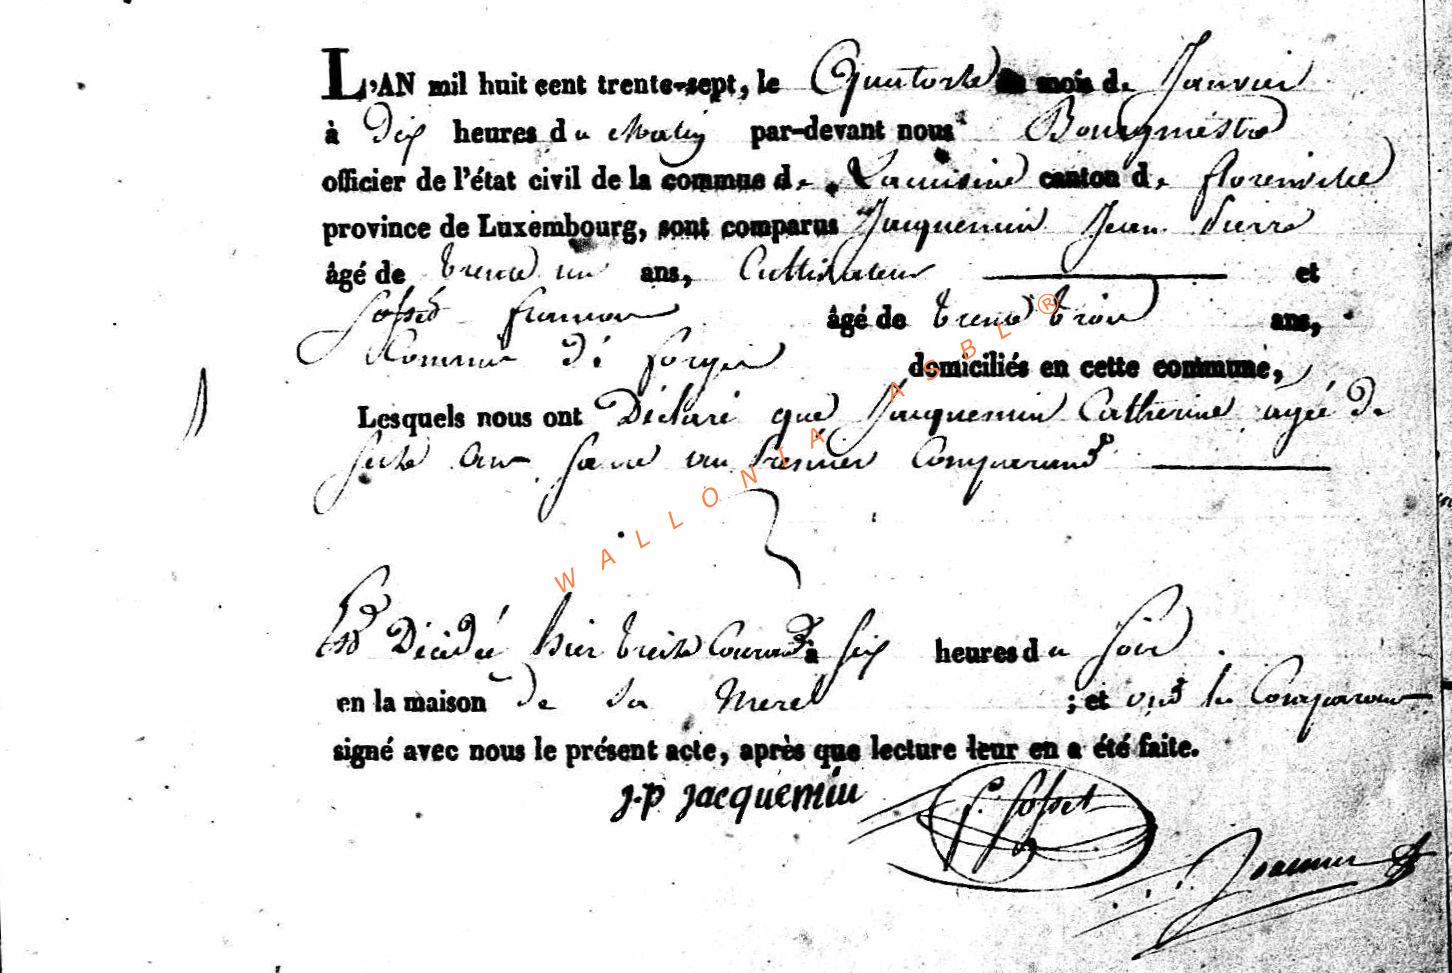 L'AN mil huit cent trente-sept, le Quatorze du mois de Janvier
à Dix heures du Matin par-devant nous Bourgmestre
officier de l'état civil de la commue de Lacuisine canton de florenville
province de Luxembourg, sont comparus Jacquemin Jean Pierre
âgé de trente un ans, Cultivateur et
françois âgé de trente trois ans,
Commis de forges domiciliés en cette commune,
Lesquels nous ont Déclaré que Jacquemin Catherine agée de
ans du premier Comparant
Est Décédée hier treize Courant à six heures du soir
en la maison de sa Mere ; et ont les Comparans
signé avec nous le présent acte, après que lecture leur en a été faite.
J.P Jacquemin
WALLONIA ASBL ®